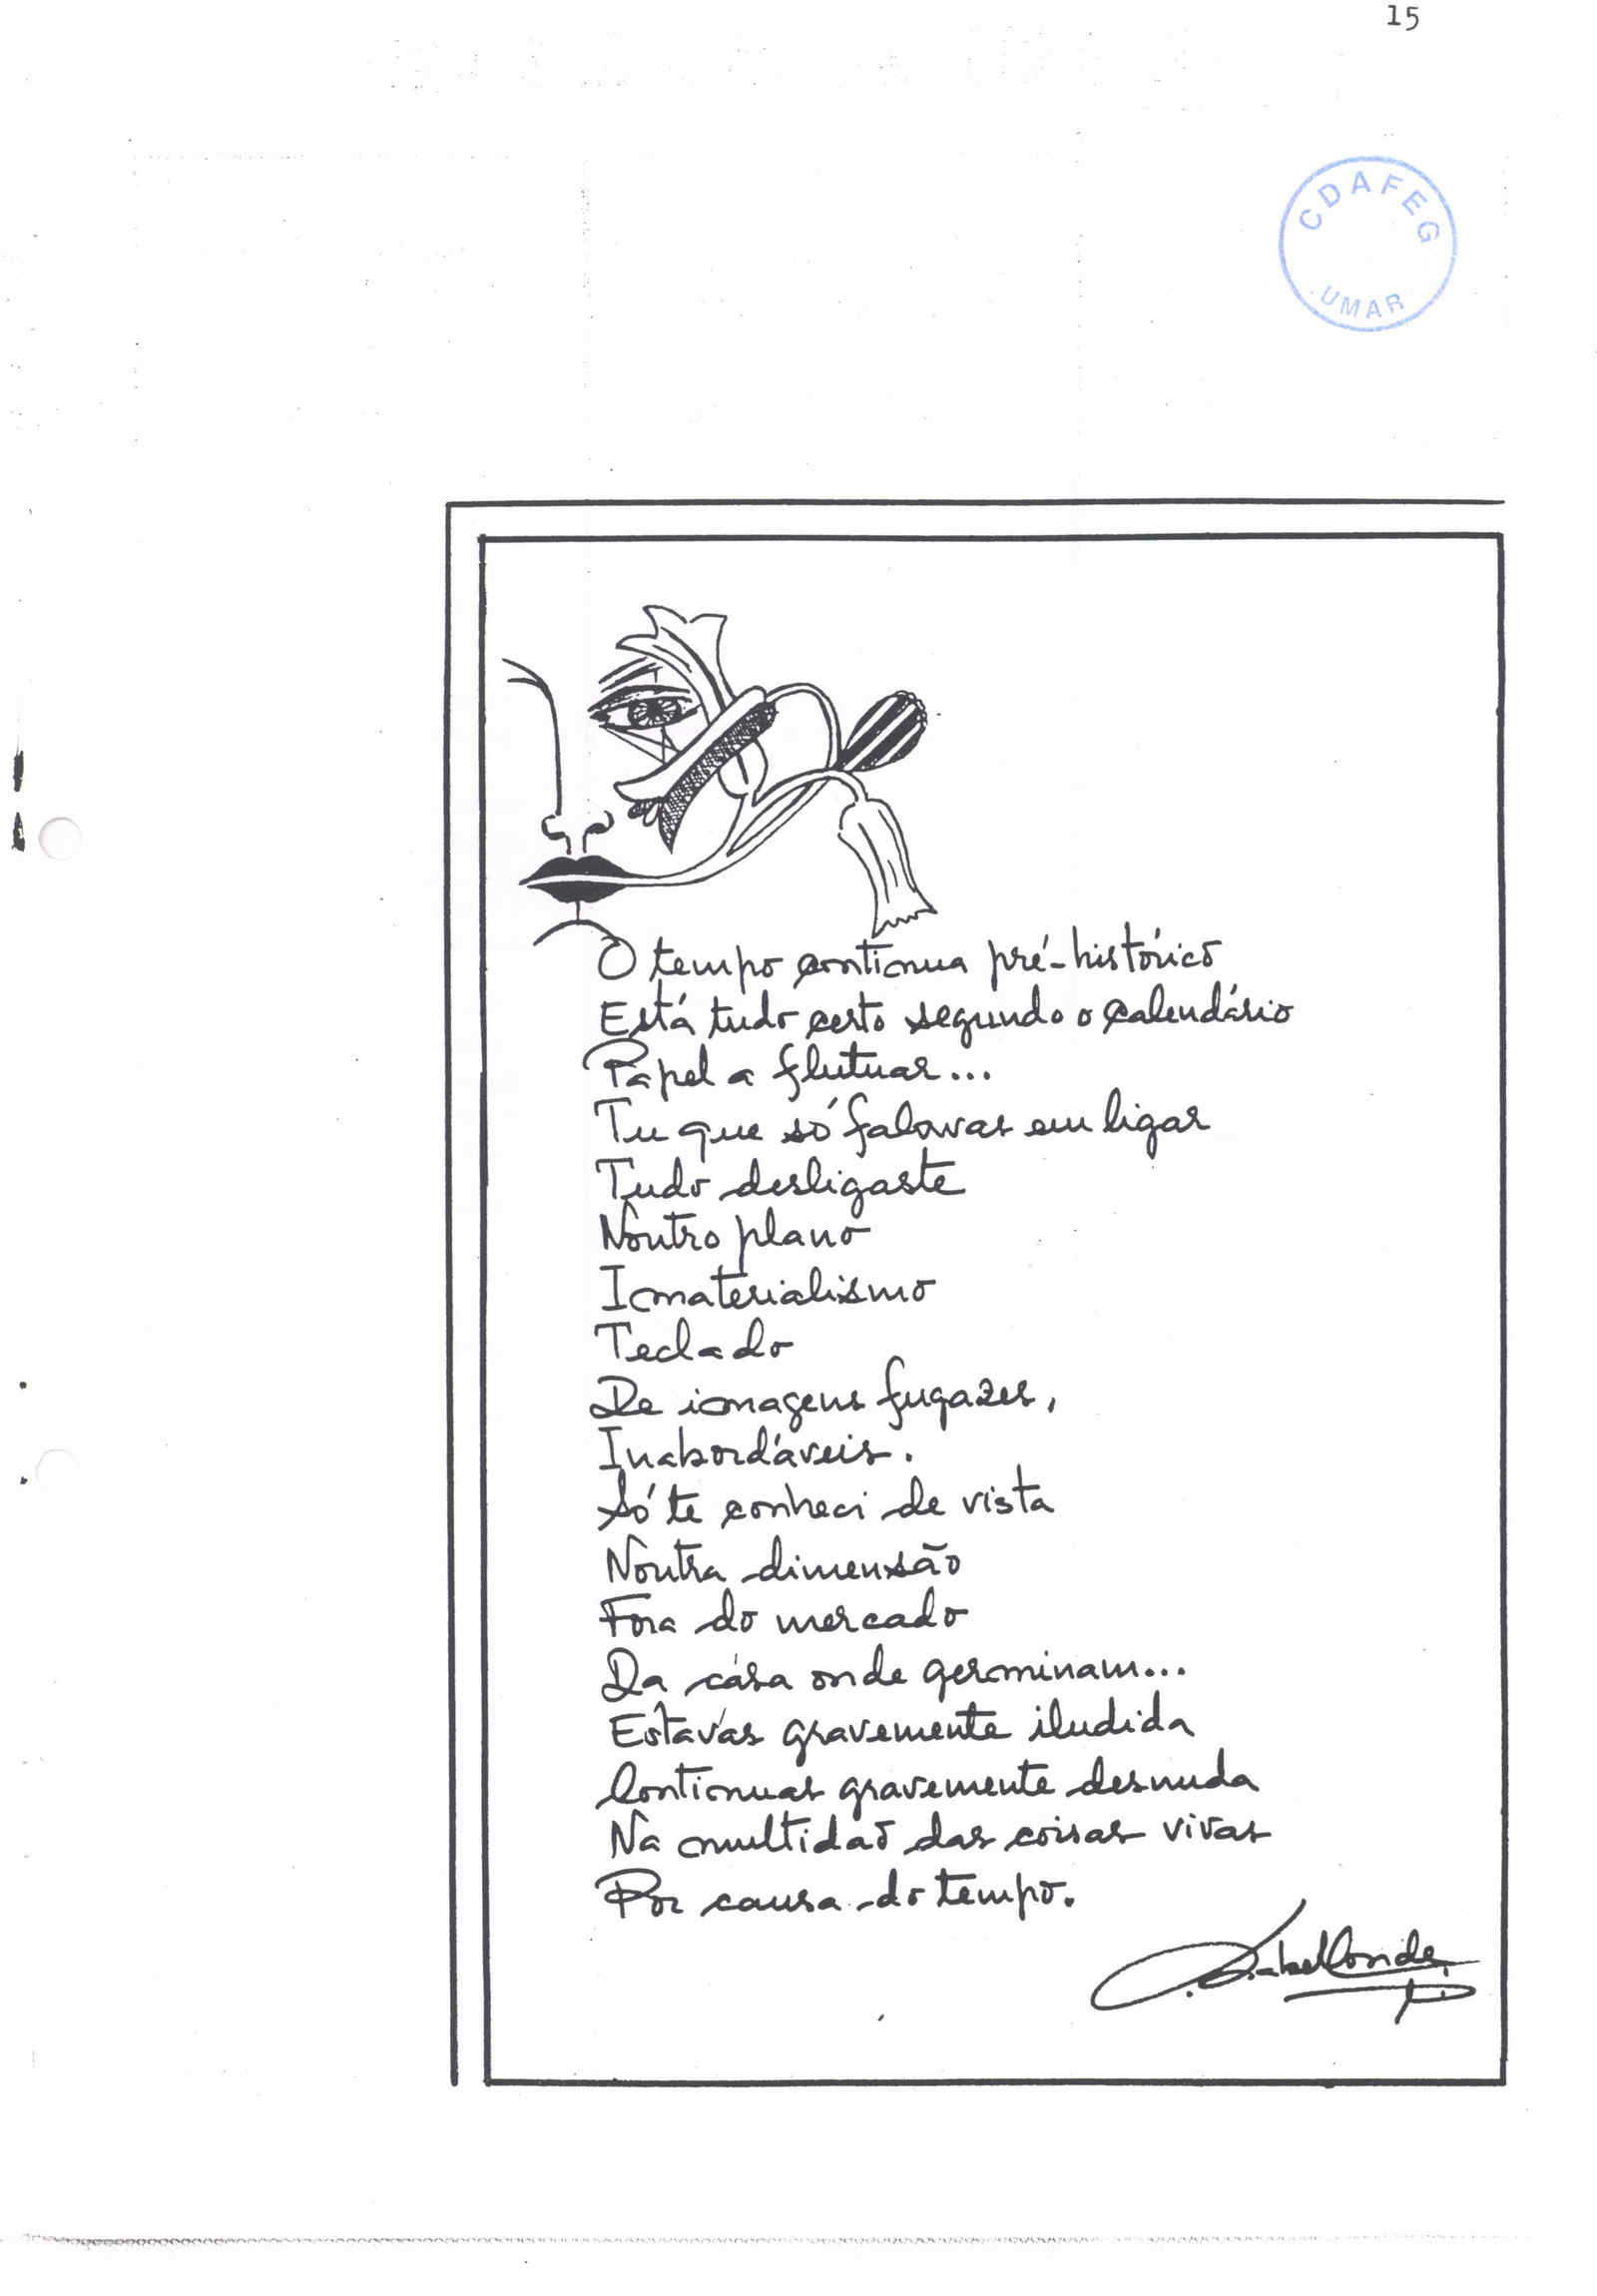 15
CDAFEG
UMAR
O tempo continua pré-histórico
Está tudo certo segundo o calendário
Papel a flutuar...
Tu que só falavas em ligar
Tudo desligaste
Noutro plano
Imaterialismo
Teclado
De imagens fugazes,
Inabordáveis.
Só te conheci de vista
Noutra dimensão
Fora do mercado
Da cása onde germinam...
Estavas gravemente iludida
Continuas gravemente desnuda
Na multidaõ das coisas vivas
Por causa do tempo.
Isabel Conde